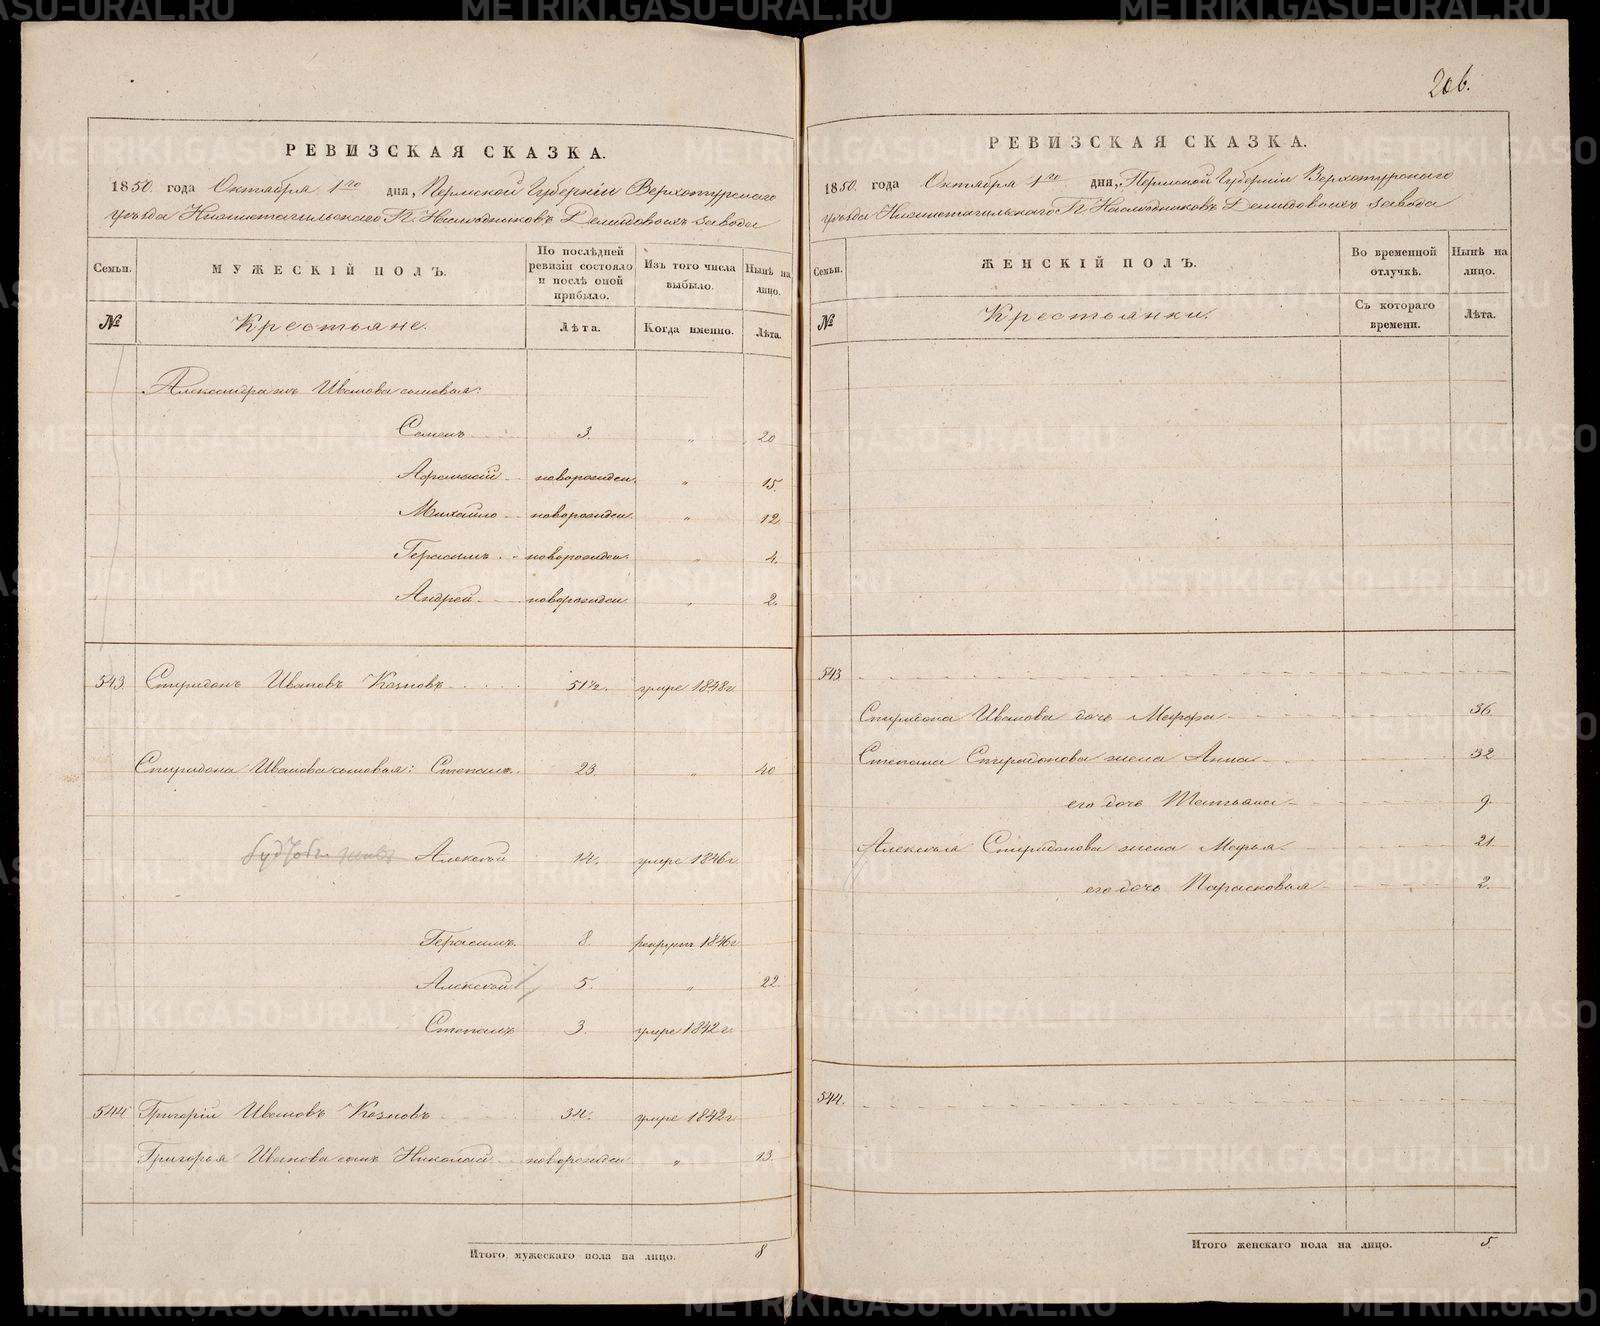 206.
РЕВИЗСКАЯ СКАЗКА.
1850. года Октября 1го дня, Пермской Губерніи Верхотурскаго
уѣзда Нижнетагильскаго Гг. Наслѣдниковъ Демидовыхъ завода
Семьи. МУЖЕСКІЙ ПОЛЪ. По послѣдней ревизіи состояло и послѣ оной прибыло. Изъ того числа выбыло. Нынѣ на лицо.
№ Крестьяне. Лѣта. Когда именно. Лѣта.
Ивановы сыновья:
Семенъ 3. „ 20
новорожден. „ 15.
Михайло новорожден. „ 12.
Герасимъ новорожден. „ 4.
Андрей новорожден. „ 2.
543. Спиридонъ Ивановъ 51½. умре 1848г.
Спиридона Иванова сыновья: Степанъ 23. „ 40
Алексѣй 14. умре 1846г.
Герасимъ 8. рекрутъ 1846г.
Алексѣй 5. „ 22.
Степанъ 3. умре 1842г.
544. Григорій Ивановъ 34. умре 1842г.
Григорья Иванова сынъ Николай новорожден „ 13.
Итого мужескаго пола на лицо. 8
РЕВИЗСКАЯ СКАЗКА.
1850. года Октября 1го дня, Пермской Губерніи Верхотурскаго
уѣзда Нижнетагильскаго Гг. Наслѣдниковъ Демидовыхъ завода
Семьи. ЖЕНСКІЙ ПОЛЪ. Во временной отлучкѣ. Нынѣ на лицо.
№ Крестьянки. Съ котораго времени. Лѣта.
543.
Спиридона Иванова дочь Марфа 36.
Степана Спиридонова жена Анна 32
его дочь Татьяна 9.
Алексѣя Спиридонова жена Марья 21.
его дочь Парасковья 2.
544.
Итого женскаго пола на лицо. 5.
METRIKI.GASO-URAL.RU